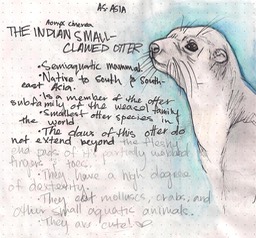 AS-ASIA
Aonyx cinerea
THE INDIAN SMALL-
CLAWED OTTER
•Semiaquatic mammal
•Native to South & South-
east Asia.
•Is a member of the otter
subfamily of the weasel family
•Smallest otter species in
the world
•The claws of this otter do
not extend beyond the fleshy
end pads of its partially webbed
fingers & toes.
•They have a high degree
of dexterity.
•They eat molluscs, crabs, and
other small aquatic animals.
•They are cute!